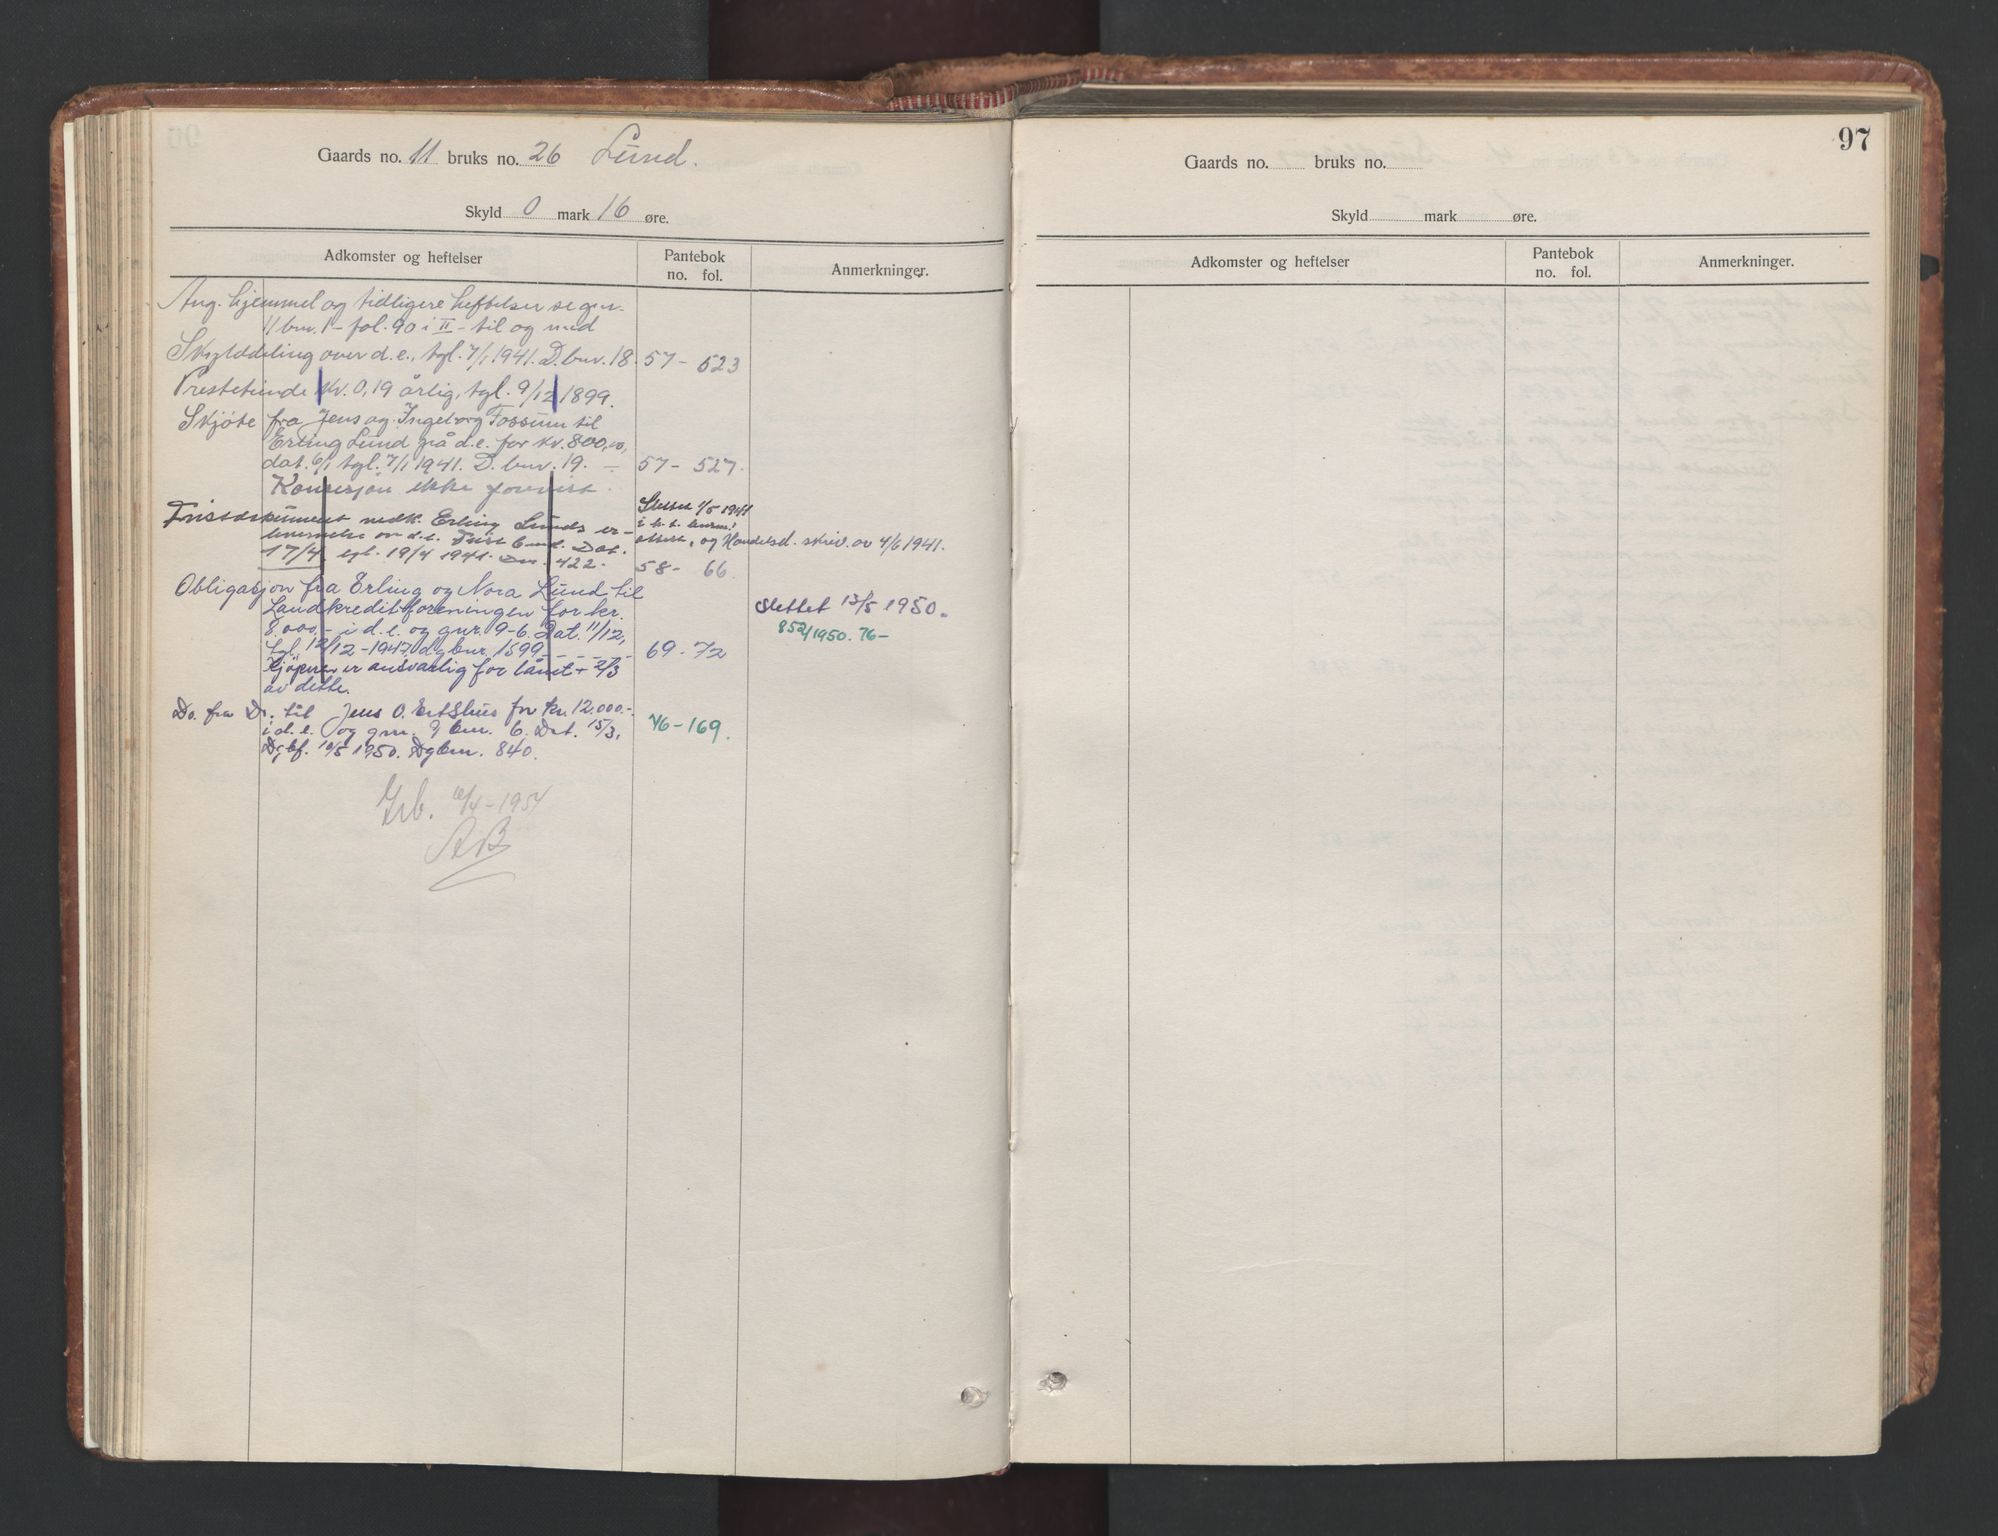 Gaards no. 11 bruks no. 26 Lund.
Skyld 0 mark 16 øre.
Adkomster og heftelser
Pantebok
no. fol.
Anmerkninger.
Ang. hjemmel og tidligere heftelser se gnr.
11 bnr. 1 – fol. 90 i II – til og med
Skylddeling over d.e., tgl. 7/1 1941. D.bnr. 18. 57 – 523
Prestetiende kr. 0,19 årlig, tgl. 9/12 1899.
Skjöte fra Jens og Ingeborg Fossum til
Erling Lund på d.e. for kr. 800,00,
dat. 6/1 tgl. 7/1 1941. D. bnr. 19. – 57 – 527.
Konsesjon ikke forevist.
Fristdokument vedk. Erling Lunds er-
vervelse av d.e. Frist 6 mdr. Dat.
17/4, tgl. 19/4 1941. Dnr. 422. 58 – 66.
Slettet 1/5 1941
attest, og Handelsd. skriv. av 4/6 1941.
Obligasjon fra Erling og Nora Lund til
Landkreditforeningen for kr.
8.000.– i d.e. og gnr. 9-6. Dat. 11/12,
tgl. 12/12 – 1947. dgbnr. 1599 69 - 72
Kjöperen er ansvarlig for lånet + 2/3
av dette.
Slettet 13/5 1950.
852/1950. 76 –
Do. fra Do. til Jens O. for kr. 12.000.–
i d.e. og gnr. 9 bnr. 6. Dat. 15/3,
Dgbf. 10/5 1950. Dgbnr. 840. 76 – 169.
/4 – 1954
AB
97
Gaards no. bruks no.
Skyld mark øre.
Adkomster og heftelser
Pantebok
no. fol.
Anmerkninger.